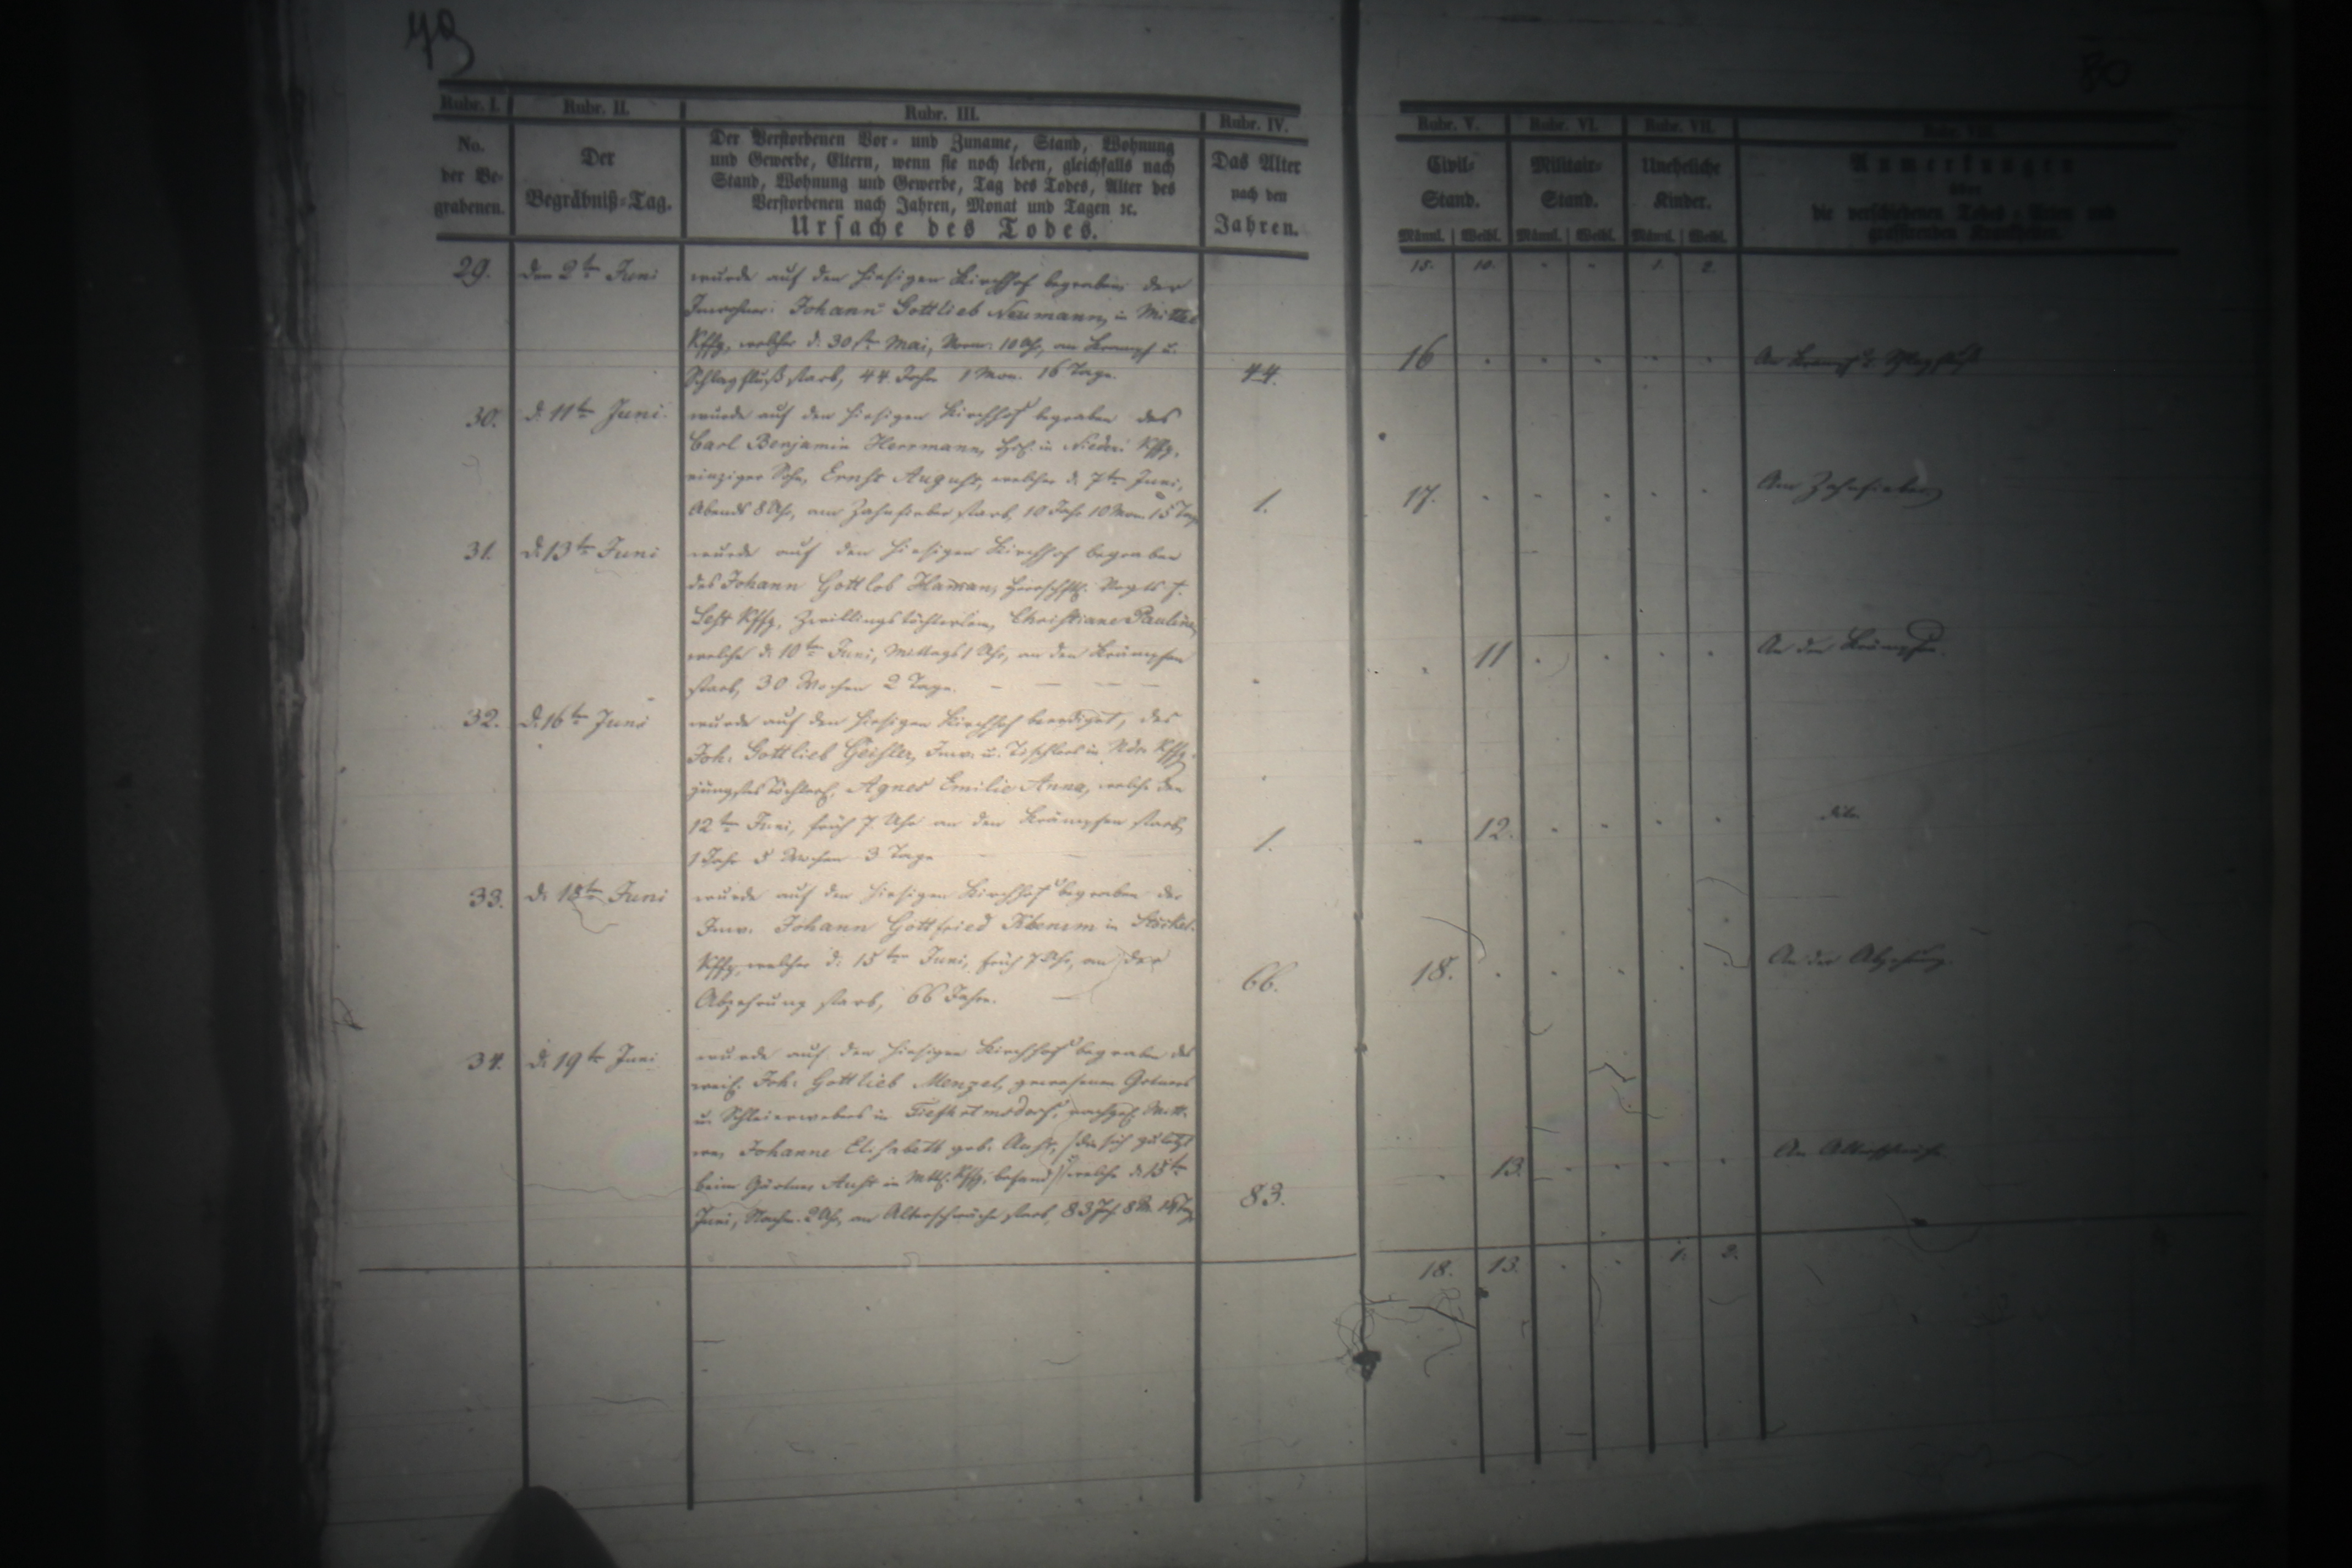 79
80
Rubr. I. Rubr. II. Rubr. III. Rubr. IV. Rubr. V. Rubr. VI. Rubr. VII. Rubr. VIII.
No. der Be- grabenen.
Der Begräbniß-Tag.
Der Verstorbenen Vor- und Zuname, Stand, Wohnung
und Gewerbe, Eltern, wenn sie noch leben, gleichfalls nach
Stand, Wohnung und Gewerbe, Tag des Todes, Alter des
Verstorbenen nach Jahren, Monat und Tagen ꝛc.
Ursache des Todes.
Das Alter nach den Jahren.
Civil- Stand.
Militair- Stand.
Uneheliche Kinder.
Anmerkungen
über
die verschiedenen Todes-Arten und
grassirenden Krankheiten.
Männl. Weibl. Männl. Weibl. Männl. Weibl.
15. 10. " " 1. 2.
29. den 2ten Juni wurde auf den hiesigen Kirchhof begraben der
Inwohner: Johann Gottlieb Neumann, in Mittel
Kffg, welcher d. 30sten Mai, Vorm: 10 Uhr, am Krampf u.
Schlagfluß starb, 44 Jahr 1 Mon. 16 Tage. 44. 16 An Krampf u. Schlagfluß
30. d. 11ten Juni. wurde auf den hiesigen Kirchhof begraben des
Carl Benjamin Herrmann, in Nieder Kffg,
einziger Sohn, Ernst August, welcher d. 7ten Juni,
Abends 8 Uhr, am Zahnfieber starb, 10 Mon. 15 Tag 1. 17. Am Zahnfieber
31. d. 13ten Juni wurde auf den hiesigen Kirchhof begraben
des Johann Gottlob Haman, herrschftl. Vogts z.
Kffg, Zwillingstöchterlein, Christiane Pauline,
welche d. 10ten Juni, Mittags 1 Uhr, an den Krämpfen
starb, 30 Wochen 2 Tage. 11 An den Krämpfen.
32. d. 16ten Juni wurde auf den hiesigen Kirchhof beerdiget, des
Joh: Gottlieb Geisler, Inw. u. Tischlers in Ndr. Kffg.
jüngstes Töchterl. Agnes Emilie Anna, welche den
12ten Juni, früh 7 Uhr an den Krämpfen starb,
1 Jahr 5 Wochen 3 Tage 1. 12. dito
33. d. 18ten Juni wurde auf den hiesigen Kirchhof begraben der
Inw. Johann Gottfried in Stöckel-
Kffg, welcher d. 15ten Juni, früh 7 Uhr, an der
Abzehrung starb, 66 Jahre. 66. 18. An der Abzehrung.
34. d. 19ten Juni wurde auf den hiesigen Kirchhof begraben des
weil. Joh: Gottlieb Menzel, gewesenen Gärtners
u. Schleierwebers in Tiefhartmsdorf, nachgel. Witt-
we, Johanne Elisabeth geb. Aust, (die sich zuletzt
beim Gärtner Aust in Mttl. Kffg. befand) welche d. 15ten
Juni, Nachm. 2 Uhr, an Altersschwäche starb, 83 Jah. 8 M. 83. 13. An Altersschwäche
18. 13. " " 1. 2.